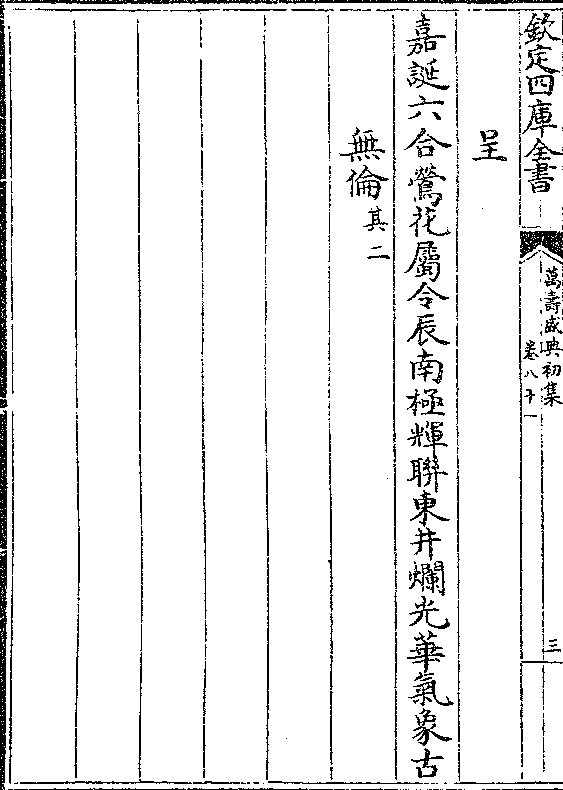 欽定四庫全書
萬壽盛典初集
卷八十一
三
呈
嘉誕六合鶯花屬令辰南極輝聯東井爛光華氣象古
無倫其二